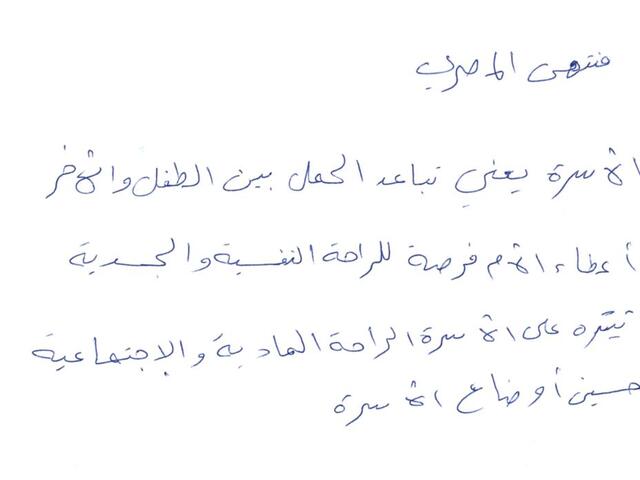 فتهى المصري
الأسرة يعني تباعد الحمل بين الطفل والآخر
أعطاء الأم فرصة للراحة النفسية والجسدية
على الأسرة الراحة المادية والإجتماعية
حسين أوضاع الأسرة